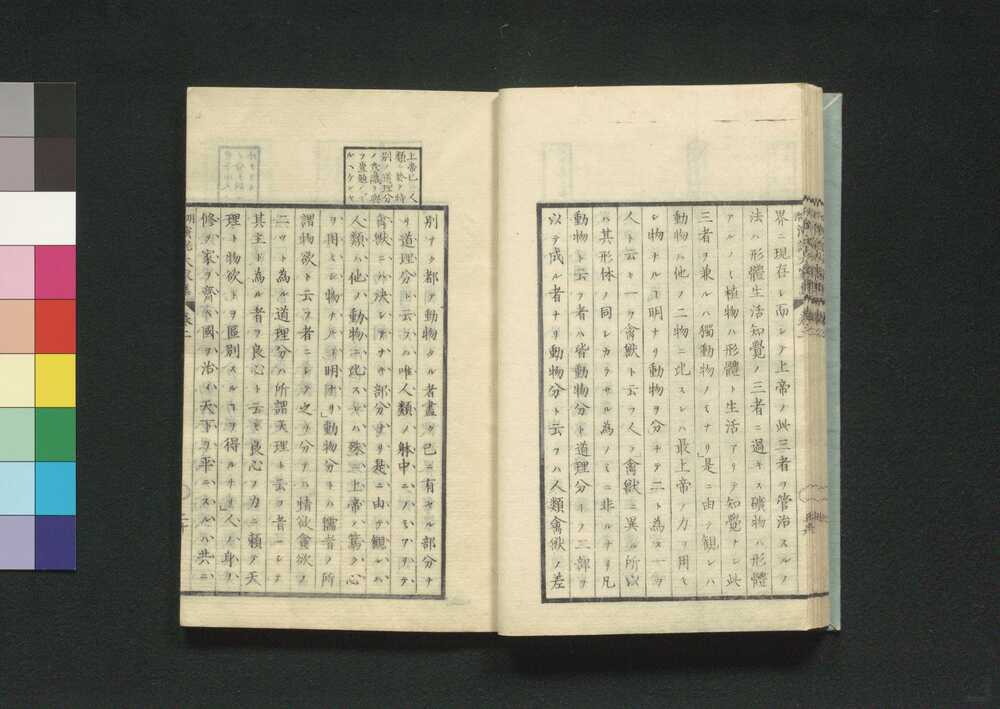 界ニ現存シ而シテ上帝ノ此三者ヲ管治スルノ
法ハ形體生活知覺ノ三者ニ過キス礦物ハ形體
アルノミ植物ハ形體ト生活アリテ知覺ナシ此
三者ヲ兼ルハ獨動物ノミナリ」是ニ由ヲ観レハ
動物ハ他ノ二物ニ比スレハ最上帝ノ力ヲ用ヒ
シ物ナルヿ明ナリ動物ヲ分チテ二ト為ス一ヲ
人ト云ヒ一ヲ禽獸ト云フ人ノ禽獸ニ異ル所以
ハ其形体ノ同シカラサル為ノミニ非ルナリ凡
動物ト云フ者ハ皆動物分ト道理分トノ二部ヲ
以テ成ル者ナリ動物分ト云フハ人類禽獸ノ差
上帝已ニ人
類ニ於テ特
別ノ道理分
別ナク都テ動物タル者盡ク已ニ有セル部分ナ
リ道理分ト云フハ唯人類ノ躰中ニノミアリテ
禽獸ニハ決シテナキ部分ナリ是ニ由テ観レハ
人類ハ他ノ動物ニ比スレハ殊ニ上帝ノ篤ク心
ヲ用ヒシ物ナルヿ明ナリ」動物分ハ儒者ノ所
謂物欲ト云フ者ニシテ之ヲ分テハ情欲禽欲ノ
二ツト為ル道理分ハ所謂天理ト云フ者ニシテ
其主ト為ル者ヲ良心ト云フ良心ノ力ニ頼テ天
理ト物欲トヲ區別スルヿヲ得ルナリ」人ノ身ヲ
修ヲ家ヲ齊ヘ國ヲ治メ天下ヲ平ニスルハ共ニ